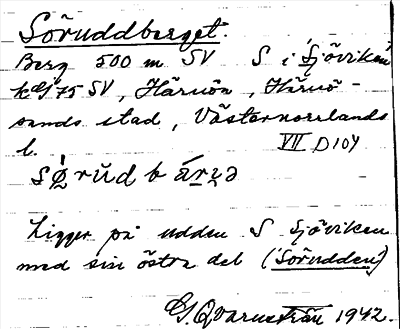 Söruddberget.
Berg 500 m SV S i Sjöviken
kg 75 SV, Härnön, Härnö-
sands stad, Västernorrlands
l. VII D104
Ligger på udden S Sjöviken
med sin östra del (Sörudden)
G. Qvarnström 1942.